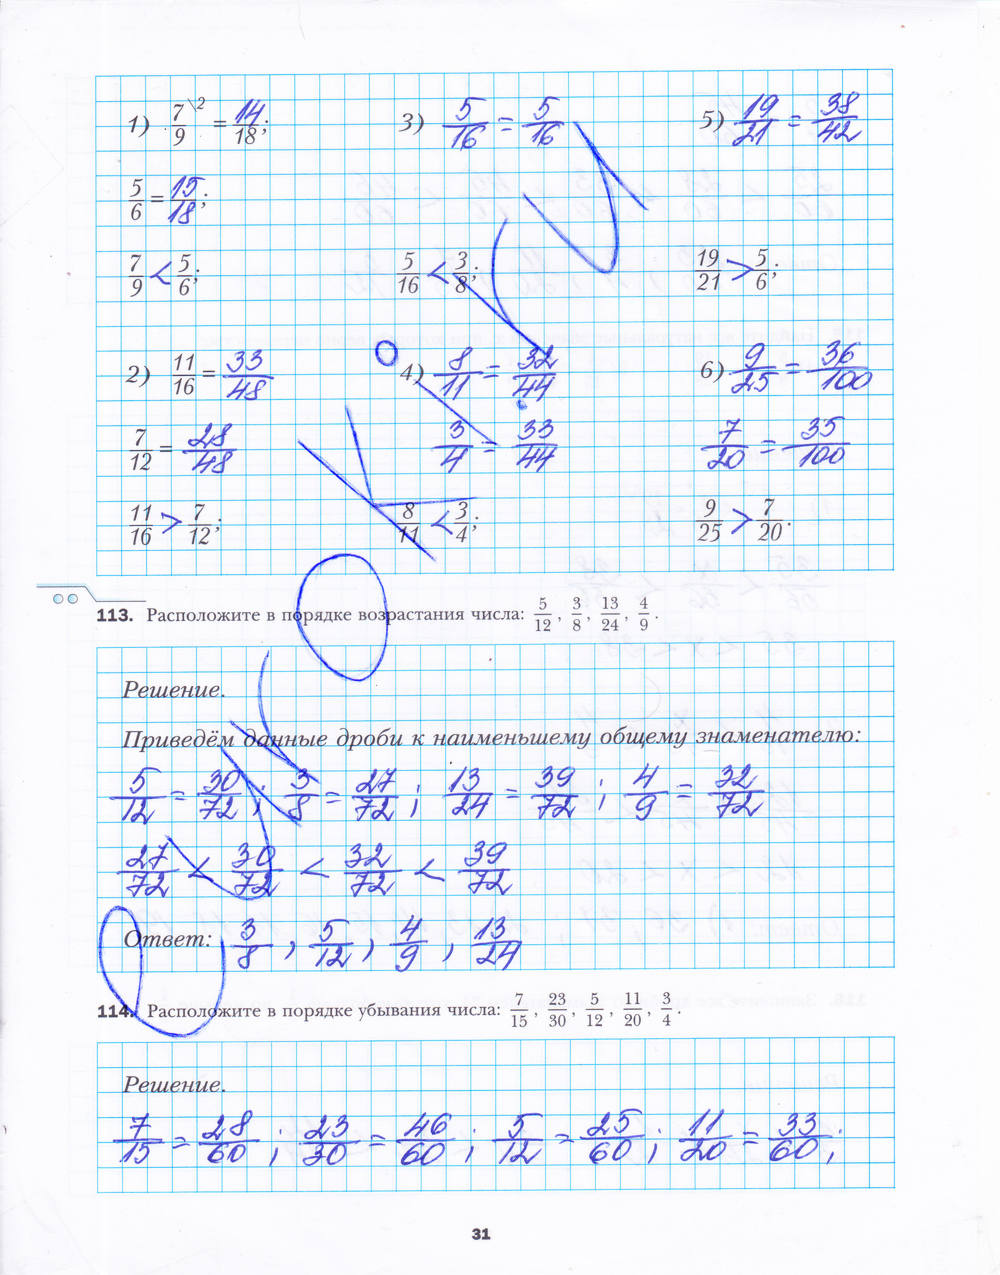 1) 7/9 \2 = 14/18; 3) 5/16 = 5/16 5) 19/21 = 38/42
5/6 = 15/18;
7/9 < 5/6; 5/16 < 3/8; 19/21 > 5/6;
2) 11/16 = 33/48 4) 8/11 = 32/44 6) 9/25 = 36/100
7/12 = 28/48 3/4 = 33/44 7/20 = 35/100
11/16 > 7/12; 8/11 < 3/4; 9/25 > 7/20.
113. Расположите в порядке возрастания числа: 5/12, 3/8, 13/24, 4/9.
Решение.
Приведём данные дроби к наименьшему общему знаменателю:
5/12 = 30/72; 3/8 = 27/72; 13/24 = 39/72; 4/9 = 32/72
27/72 < 30/72 < 32/72 < 39/72
Ответ: 3/8, 5/12, 4/9, 13/24
114. Расположите в порядке убывания числа: 7/15, 23/30, 5/12, 11/20, 3/4.
Решение.
7/15 = 28/60; 23/30 = 46/60; 5/12 = 25/60; 11/20 = 33/60;
31